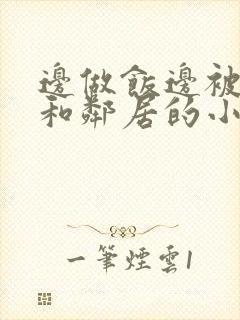 邊做飯邊被
和鄰居的小
一筆煙雲1